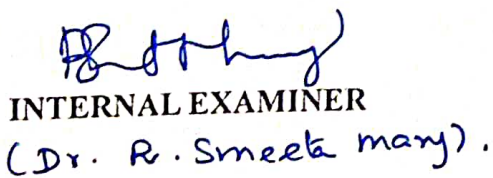 INTERNAL EXAMINER
(Dr. R. Smeeta mary).